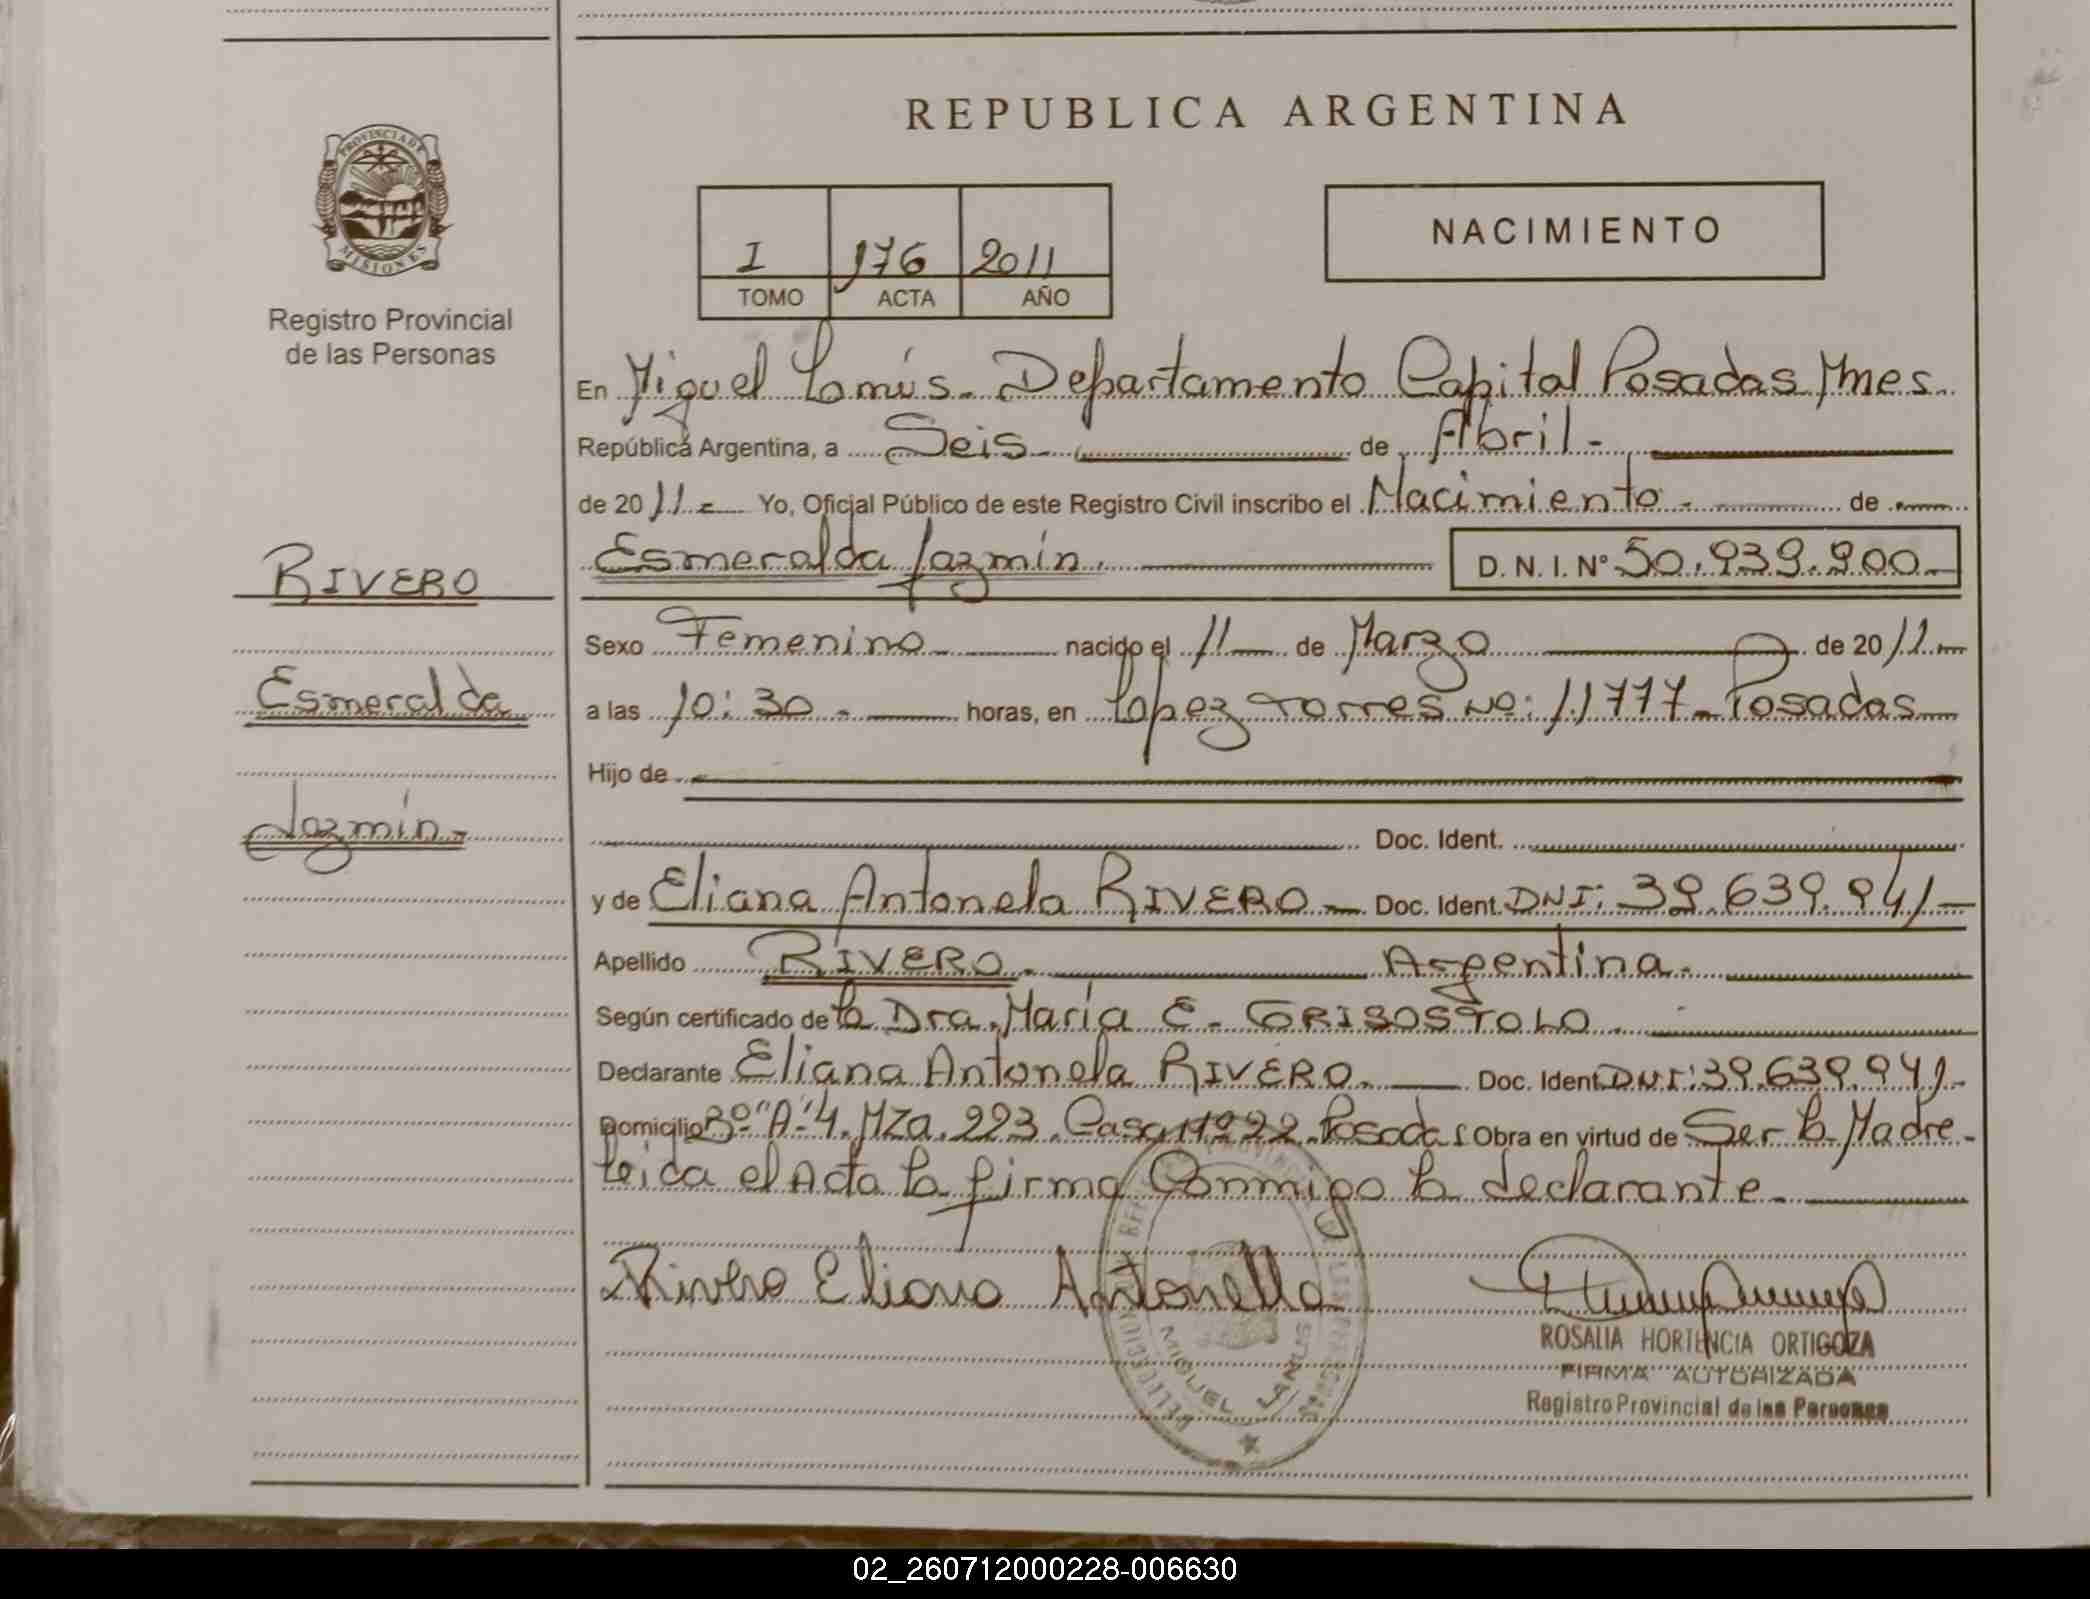 REPUBLICA ARGENTINA
PROVINCIA DE
MISIONES
Registro Provincial
de las Personas
NACIMIENTO
I 176 2011
TOMO ACTA AÑO
En Miguel Lanús. Departamento Capital Posadas Mnes.
República Argentina, a Seis de Abril.
de 2011 Yo, Oficial Público de este Registro Civil inscribo el Nacimiento. de
Esmeralda Jazmín. D. N. I. Nº 50.939.900
RIVERO
Esmeralda
Jazmín
Sexo Femenino nacido el 11 de Marzo de 2011
a las 10:30 horas, en Lopez Torres Nº: 11777 Posadas
Hijo de
Doc. Ident.
y de Eliana Antonela RIVERO Doc. Ident. DNI: 39.639.941
Apellido RIVERO. Argentina.
Según certificado de la Dra. María E. GRISOSTOLO
Declarante Eliana Antonela RIVERO. Doc. Ident. DNI: 39.639.941
Domicilio Bº "A-4. MZa. 223. Casa Nº 22. Posadas Obra en virtud de Ser la Madre.
Leida el Acta la firma Conmigo la declarante
Rivero Eliana Antonella
MIGUEL LANUS
ROSALIA HORTENCIA ORTIGOZA
FIRMA AUTORIZADA
Registro Provincial de las Personas
02_260712000228-006630